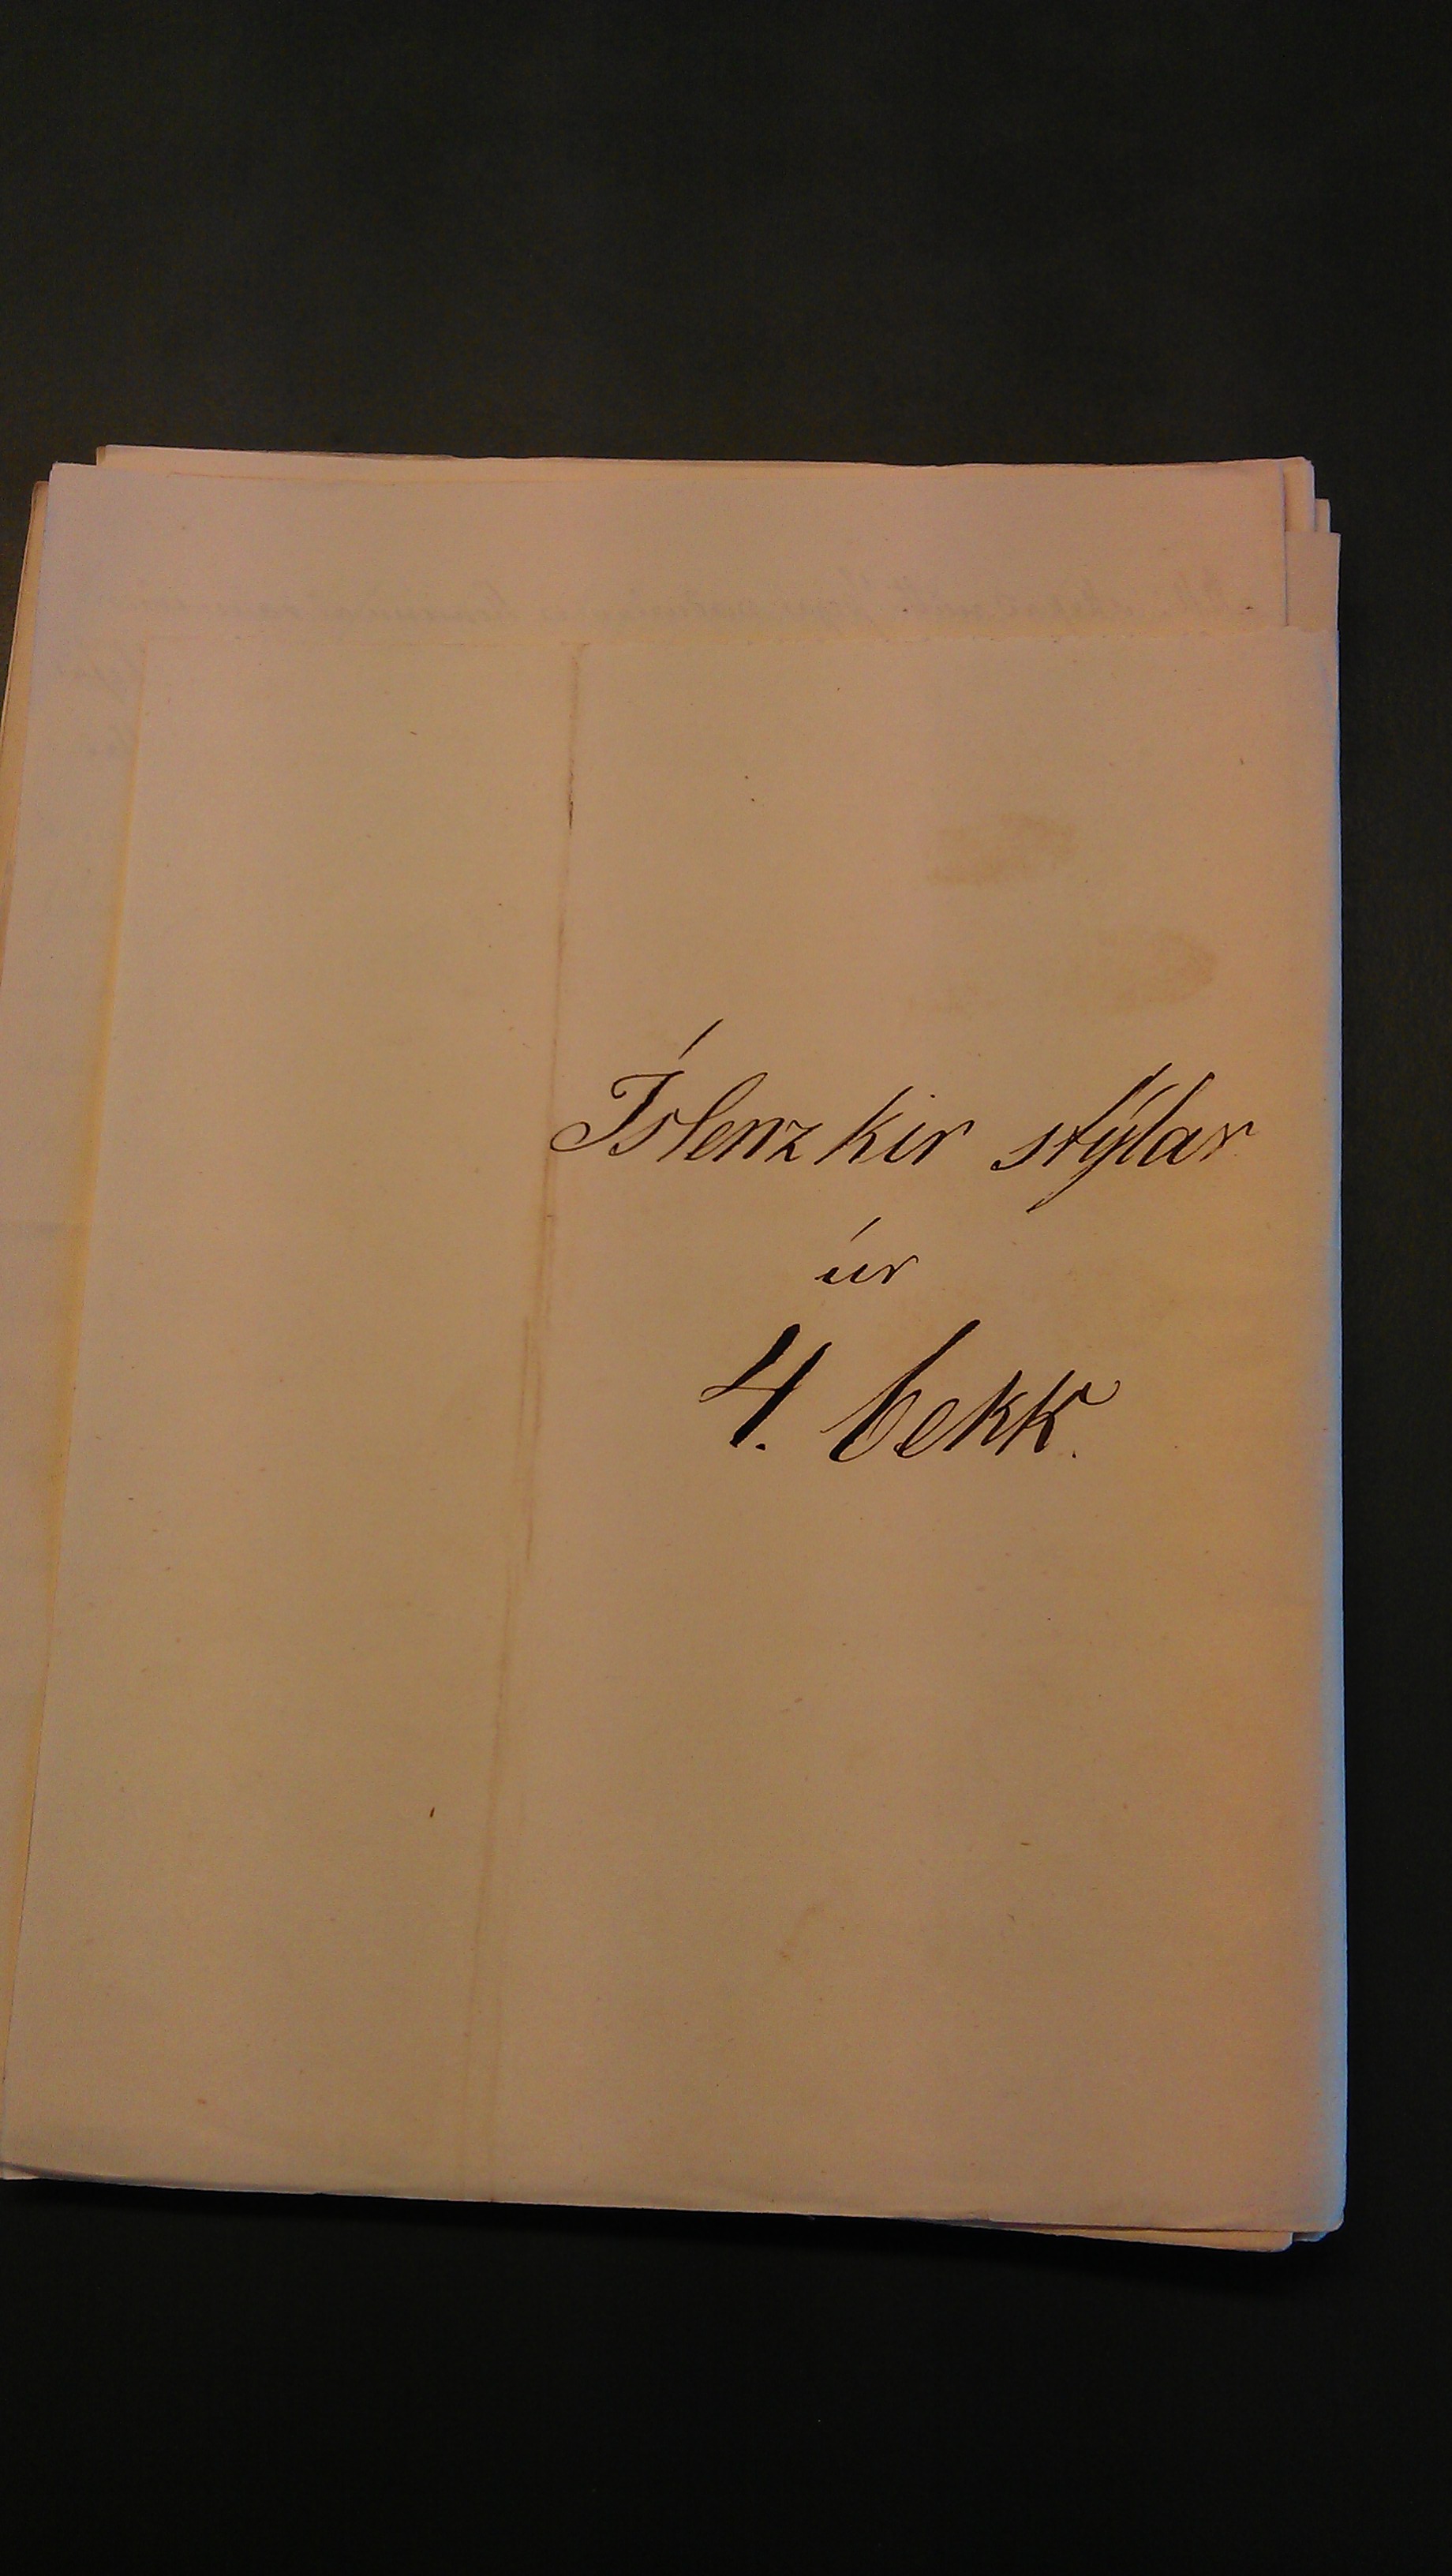 Íslenzkir stýlar
úr
4. bekk.